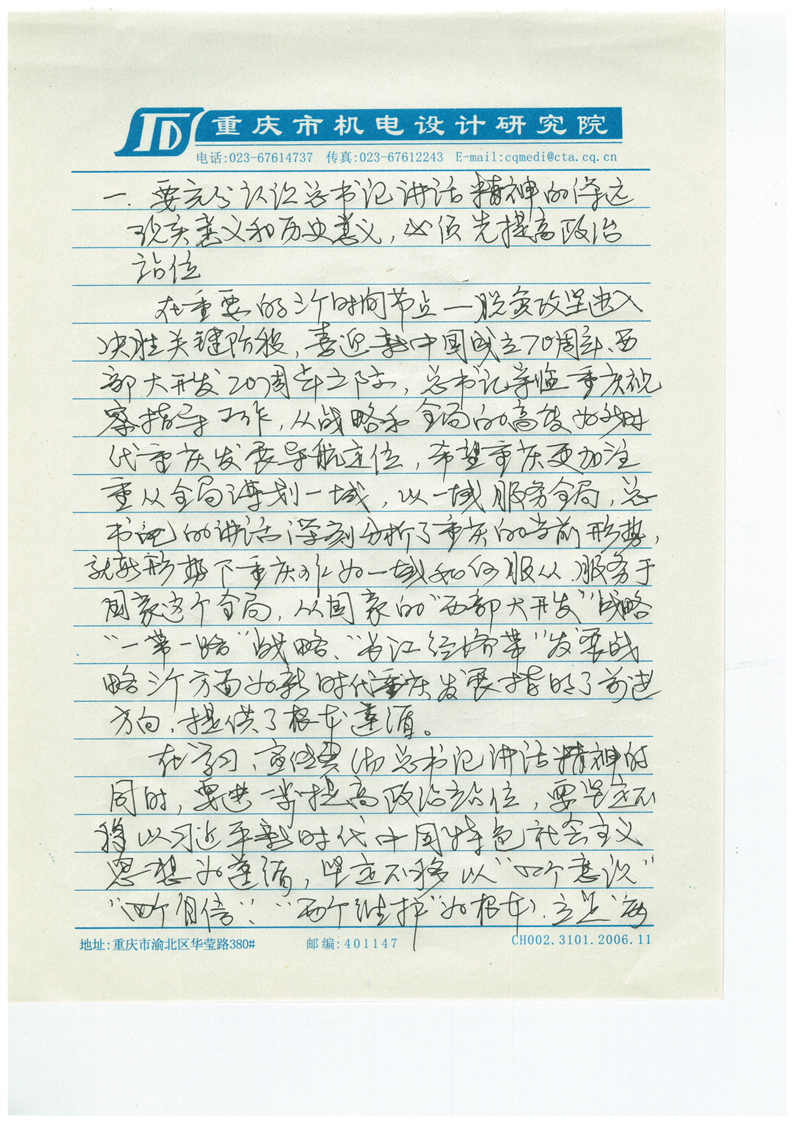 JD
重庆市机电设计研究院
电话:023-67614737 传真:023-67612243 E-mail:cqmedi@cta.cq.cn
一.要充分认识总书记讲话精神的深远
现实意义和历史意义,必须先提高政治
站位
在重要的三个时间节点—脱贫攻坚进入
决胜关键阶段,喜迎新中国成立70周年、西
部大开发20周年之际,总书记亲临重庆视
察指导工作,从战略和全局的高度为新时
代重庆发展导航定位,希望重庆更加注
重从全局谋划一域,以一域服务全局,总
书记的讲话深刻分析了重庆的当前形势,
就新形势下重庆作为一域如何服从、服务于
国家这个全局,从国家的“西部大开发”战略
“一带一路”战略、“长江经济带”发展战
略三个方面为新时代重庆发展指明了前进
方向,提供了根本遵循。
在学习、宣传贯彻总书记讲话精神的
同时,要进一步提高政治站位,要坚定不
移以习近平新时代中国特色社会主义
思想为遵循,坚定不移以“四个意识”
“四个自信”、“两个维护”为根本.立足“两
地址:重庆市渝北区华莹路380# 邮编:401147 CH002.3101.2006.11